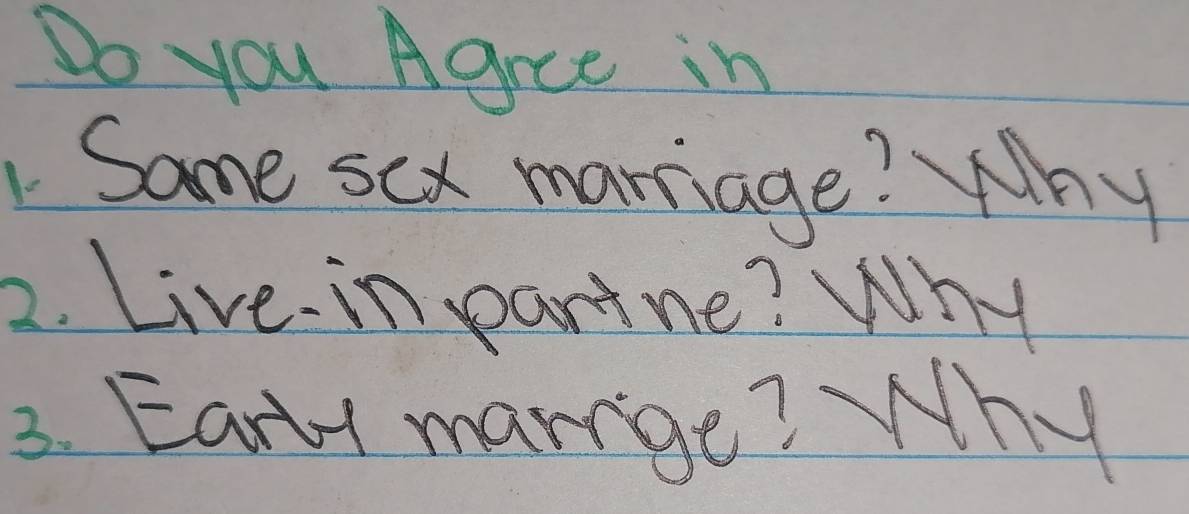 Do you Agree in
1. Same sex marriage? Why
2. Live-in partne? Why
3. Early marrige? Why